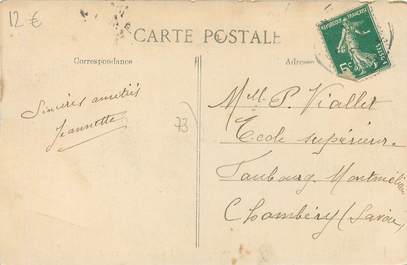 12 €
CARTE POSTALE
Correspondance
Adresse
REPUBLIQUE FRANÇAISE
5c
POSTES
Sincères amitiés
Jeannette
73
Melle P. Viallet
Ecole supérieure
Faubourg Montmélian
Chambéry (Savoie)